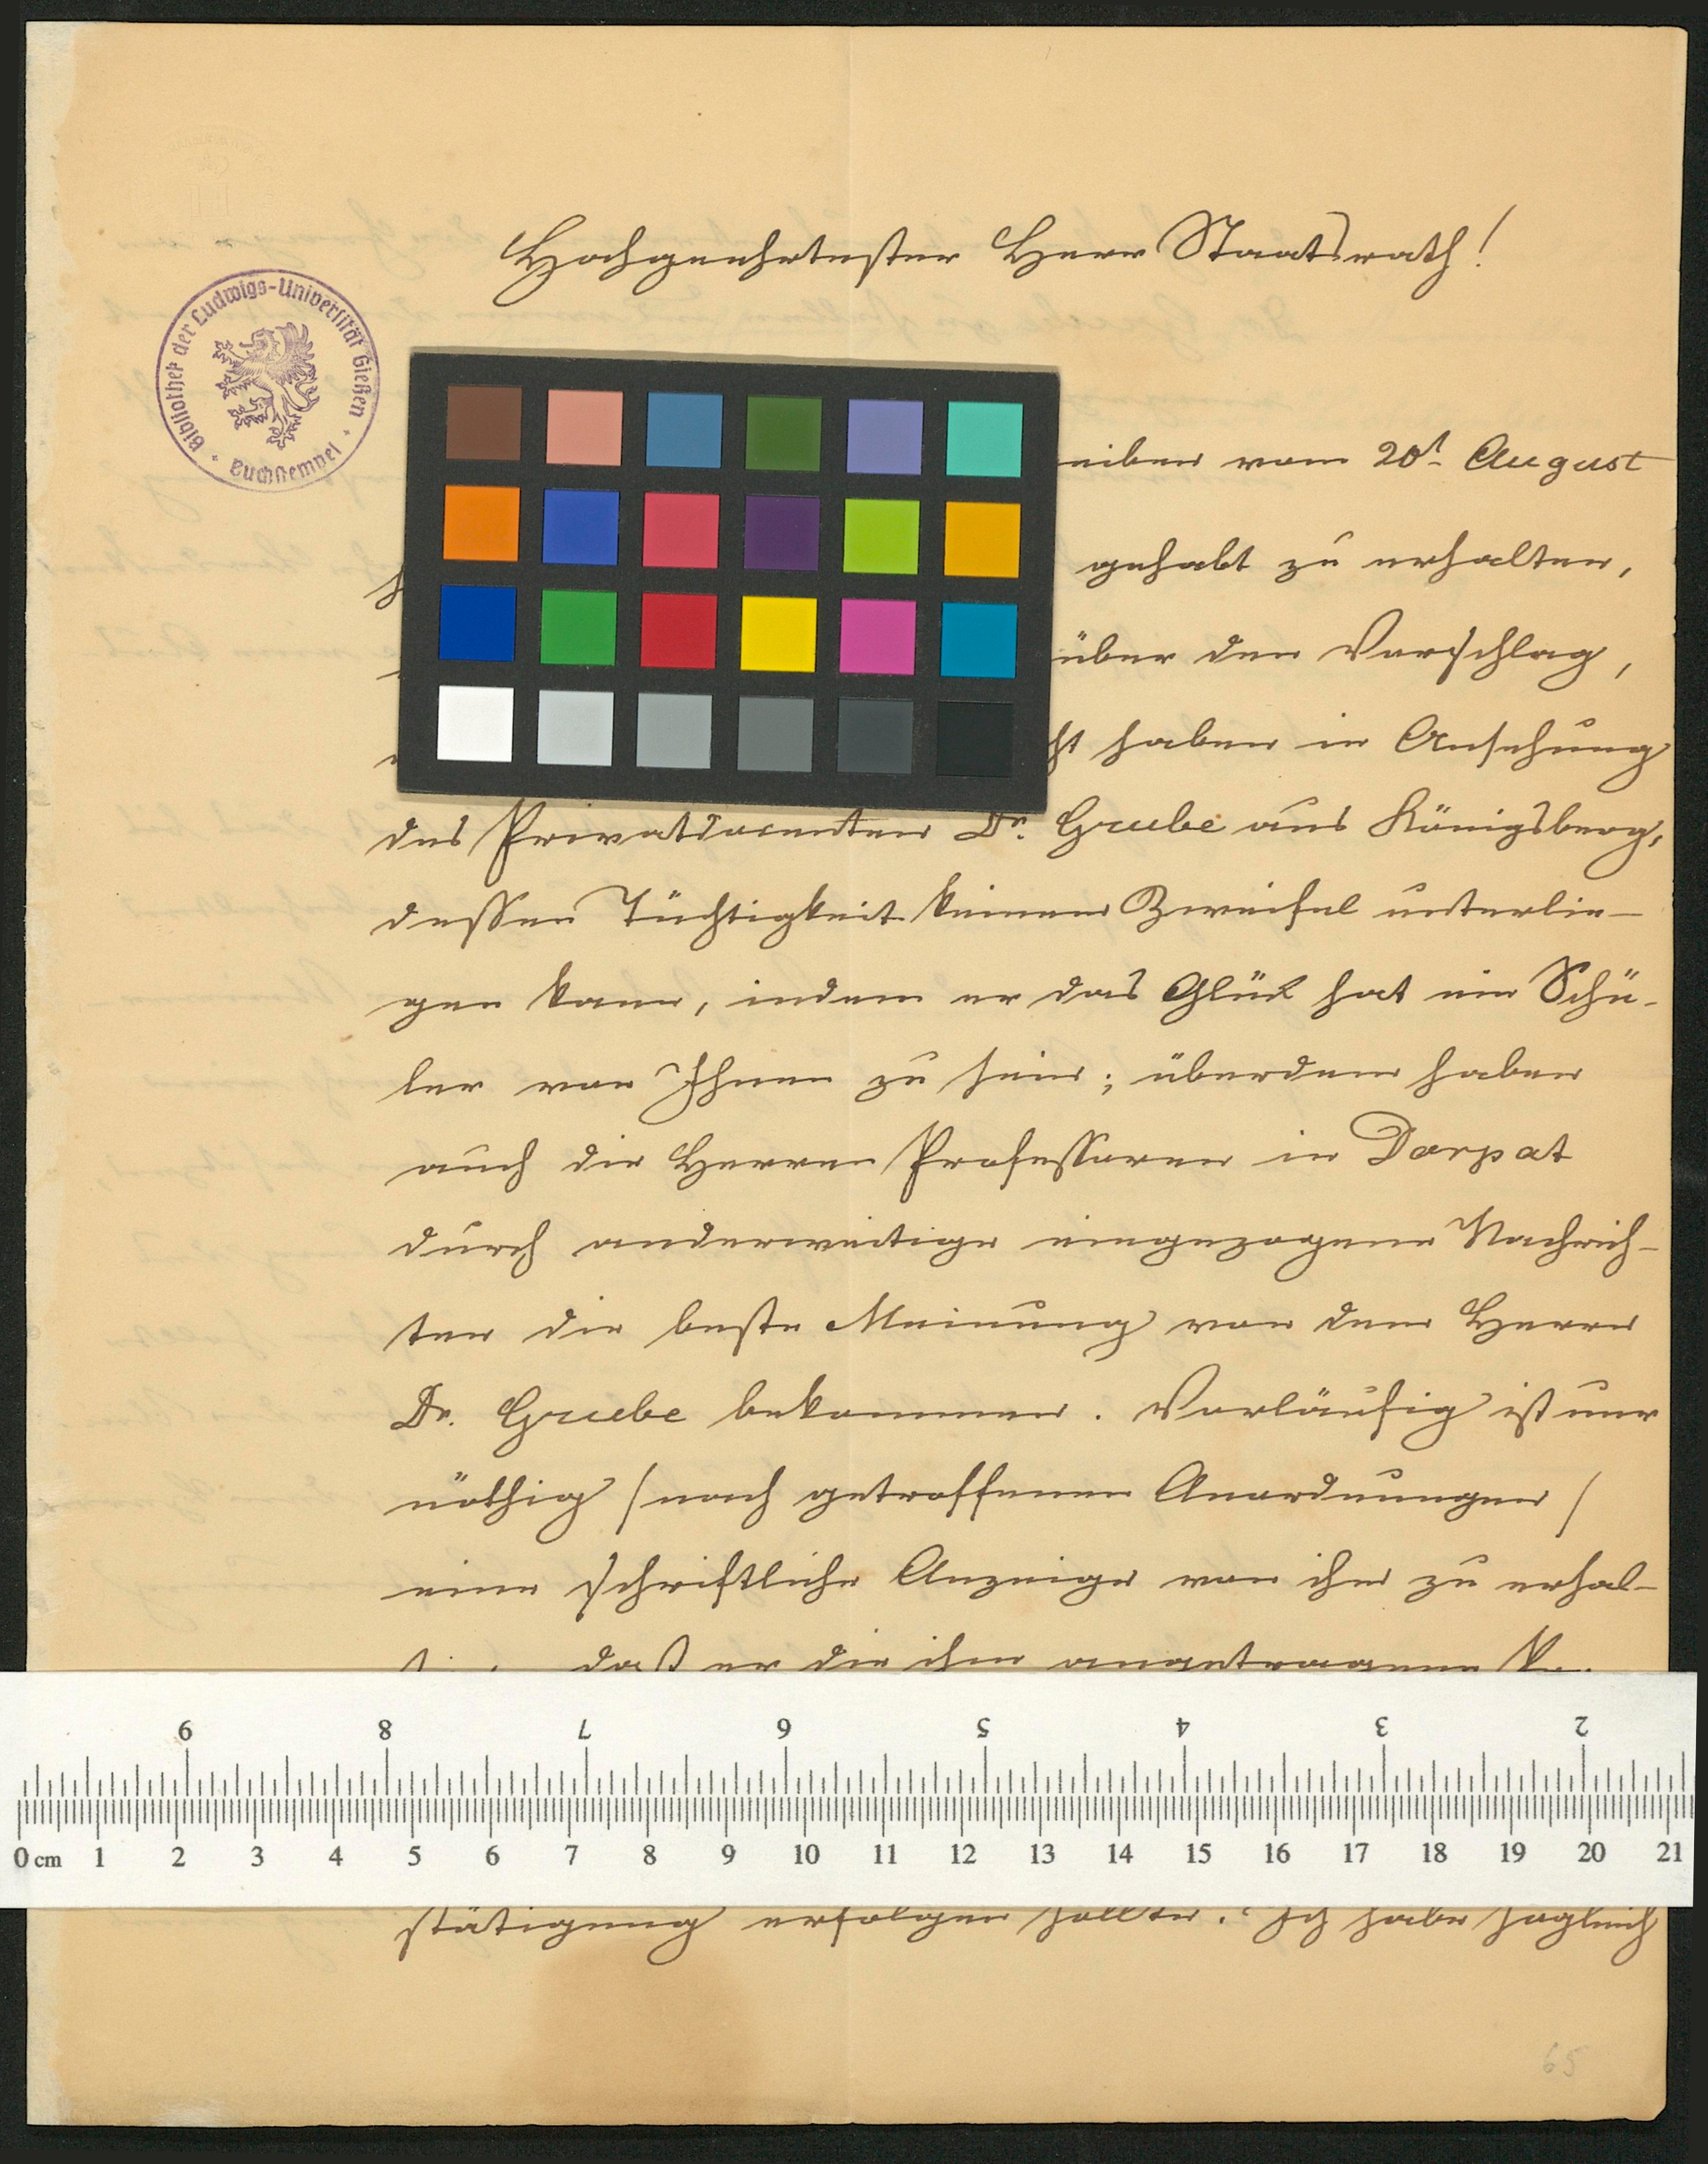 Hochgeehrtester Herr Staatsrath!
Bibliothek der Ludwigs-Universität Gießen
Buchstempel
eiben vom 20t August
gehabt zu erhalten,
über den Vorschlag,
ht haben in Ansehung
des Privatdocenten Dr. Grube aus Königsberg,
dessen Tüchtigkeit keinem Zweifel unterlie-
gen kann, indem er das Glük hat ein Schü-
ler von Ihnen zu sein; überdem haben
auch die Herren Professoren in Dorpat
durch anderweitige eingezogene Nachrich-
ten die beste Meinung von dem Herrn
Dr. Grube bekommen. Vorläufig ist nur
nöthig /nach getroffenen Anordnungen/
eine schriftliche Anzeige von ihm zu erhal-
daß er die ihm angetragene
9 8 7 6 5 4 3 2
0 cm 1 2 3 4 5 6 7 8 9 10 11 12 13 14 15 16 17 18 19 20 21
stätigung erfolgen sollte. Ich habe sogleich
65